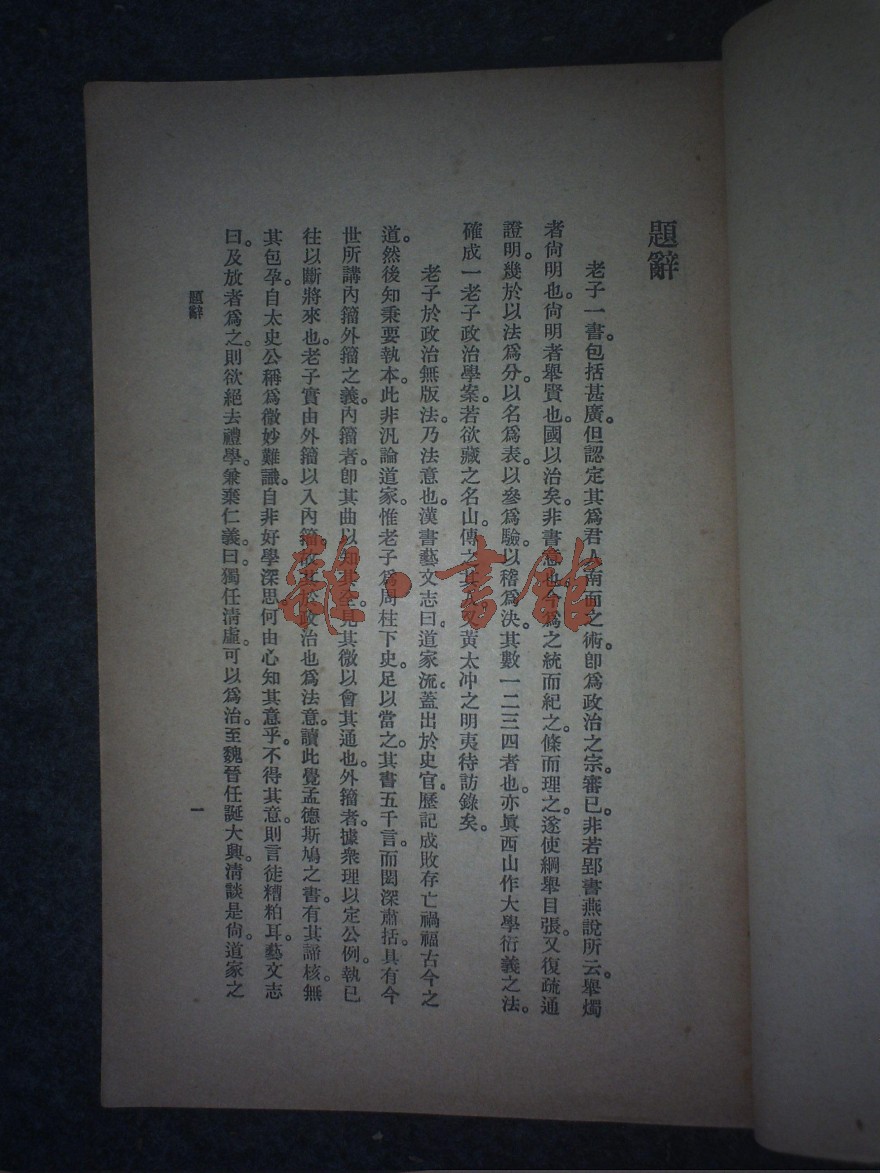 題辭
老子一書。包括甚廣。但認定其爲君人南面之術。卽爲政治之宗。審已。非若郢書燕說所云。舉燭
者尙明也。尙明者舉賢也。國以治矣。非書意也。今爲之統而紀之。條而理之。遂使綱舉目張。又復疏通
證明。幾於以法爲分。以名爲表。以參爲驗。以稽爲决。其數一二三四者也。亦眞西山作大學衍義之法。
確成一老子政治學案。若欲藏之名山。傳之其人。又黃太冲之明夷待訪錄矣。
老子於政治無版法。乃法意也。漢書藝文志曰。道家流。蓋出於史官。歷記成敗存亡禍福古今之
道。然後知秉要執本。此非汎論道家。惟老子爲周柱下史。足以當之。其書五千言。而閎深肅括。具有今
世所講內籀外籀之義。內籀者。卽其曲以知其全。見其微以會其通也。外籀者。據衆理以定公例。執已
往以斷將來也。老子實由外籀以入內籀。故其於政治也爲法意。讀此覺孟德斯鳩之書。有其諦核。無
其包孕。自太史公稱爲微妙難識。自非好學深思。何由心知其意乎。不得其意。則言徒糟粕耳。藝文志
曰。及放者爲之。則欲絕去禮學。兼棄仁義。曰。獨任淸虛。可以爲治。至魏晉任誕大興。淸談是尙。道家之
題辭
一
雜·書館